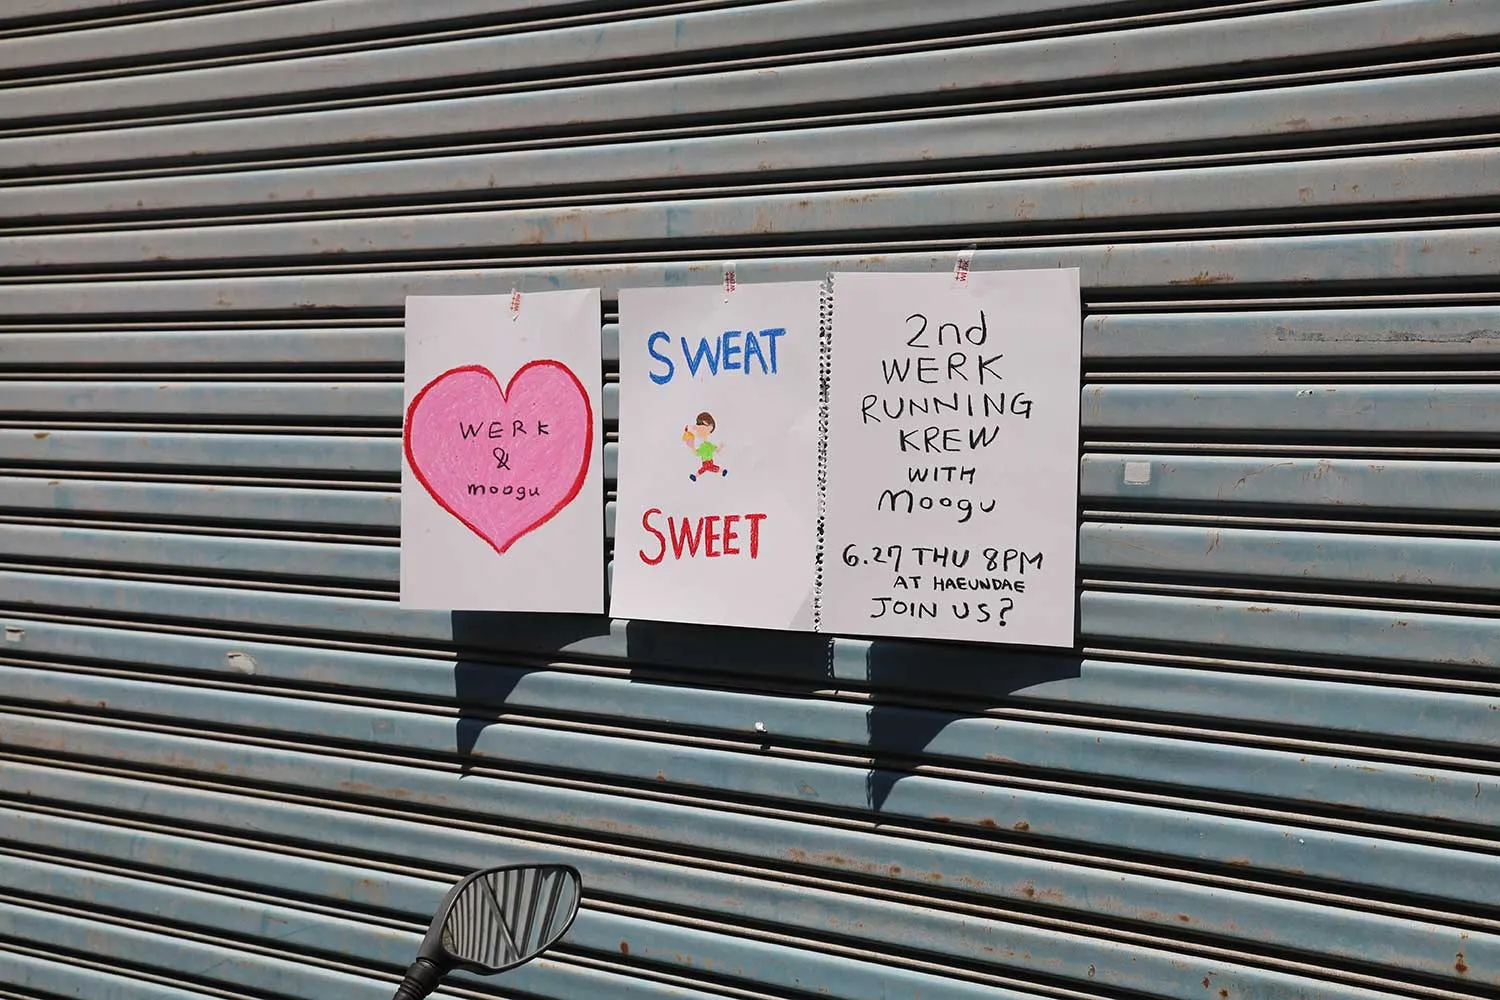 WERK
&
moogu
SWEAT
SWEET
2nd
WERK
RUNNING
KREW
WITH
Moogu
6.27 THU 8PM
AT HAEUNDAE
JOIN US?